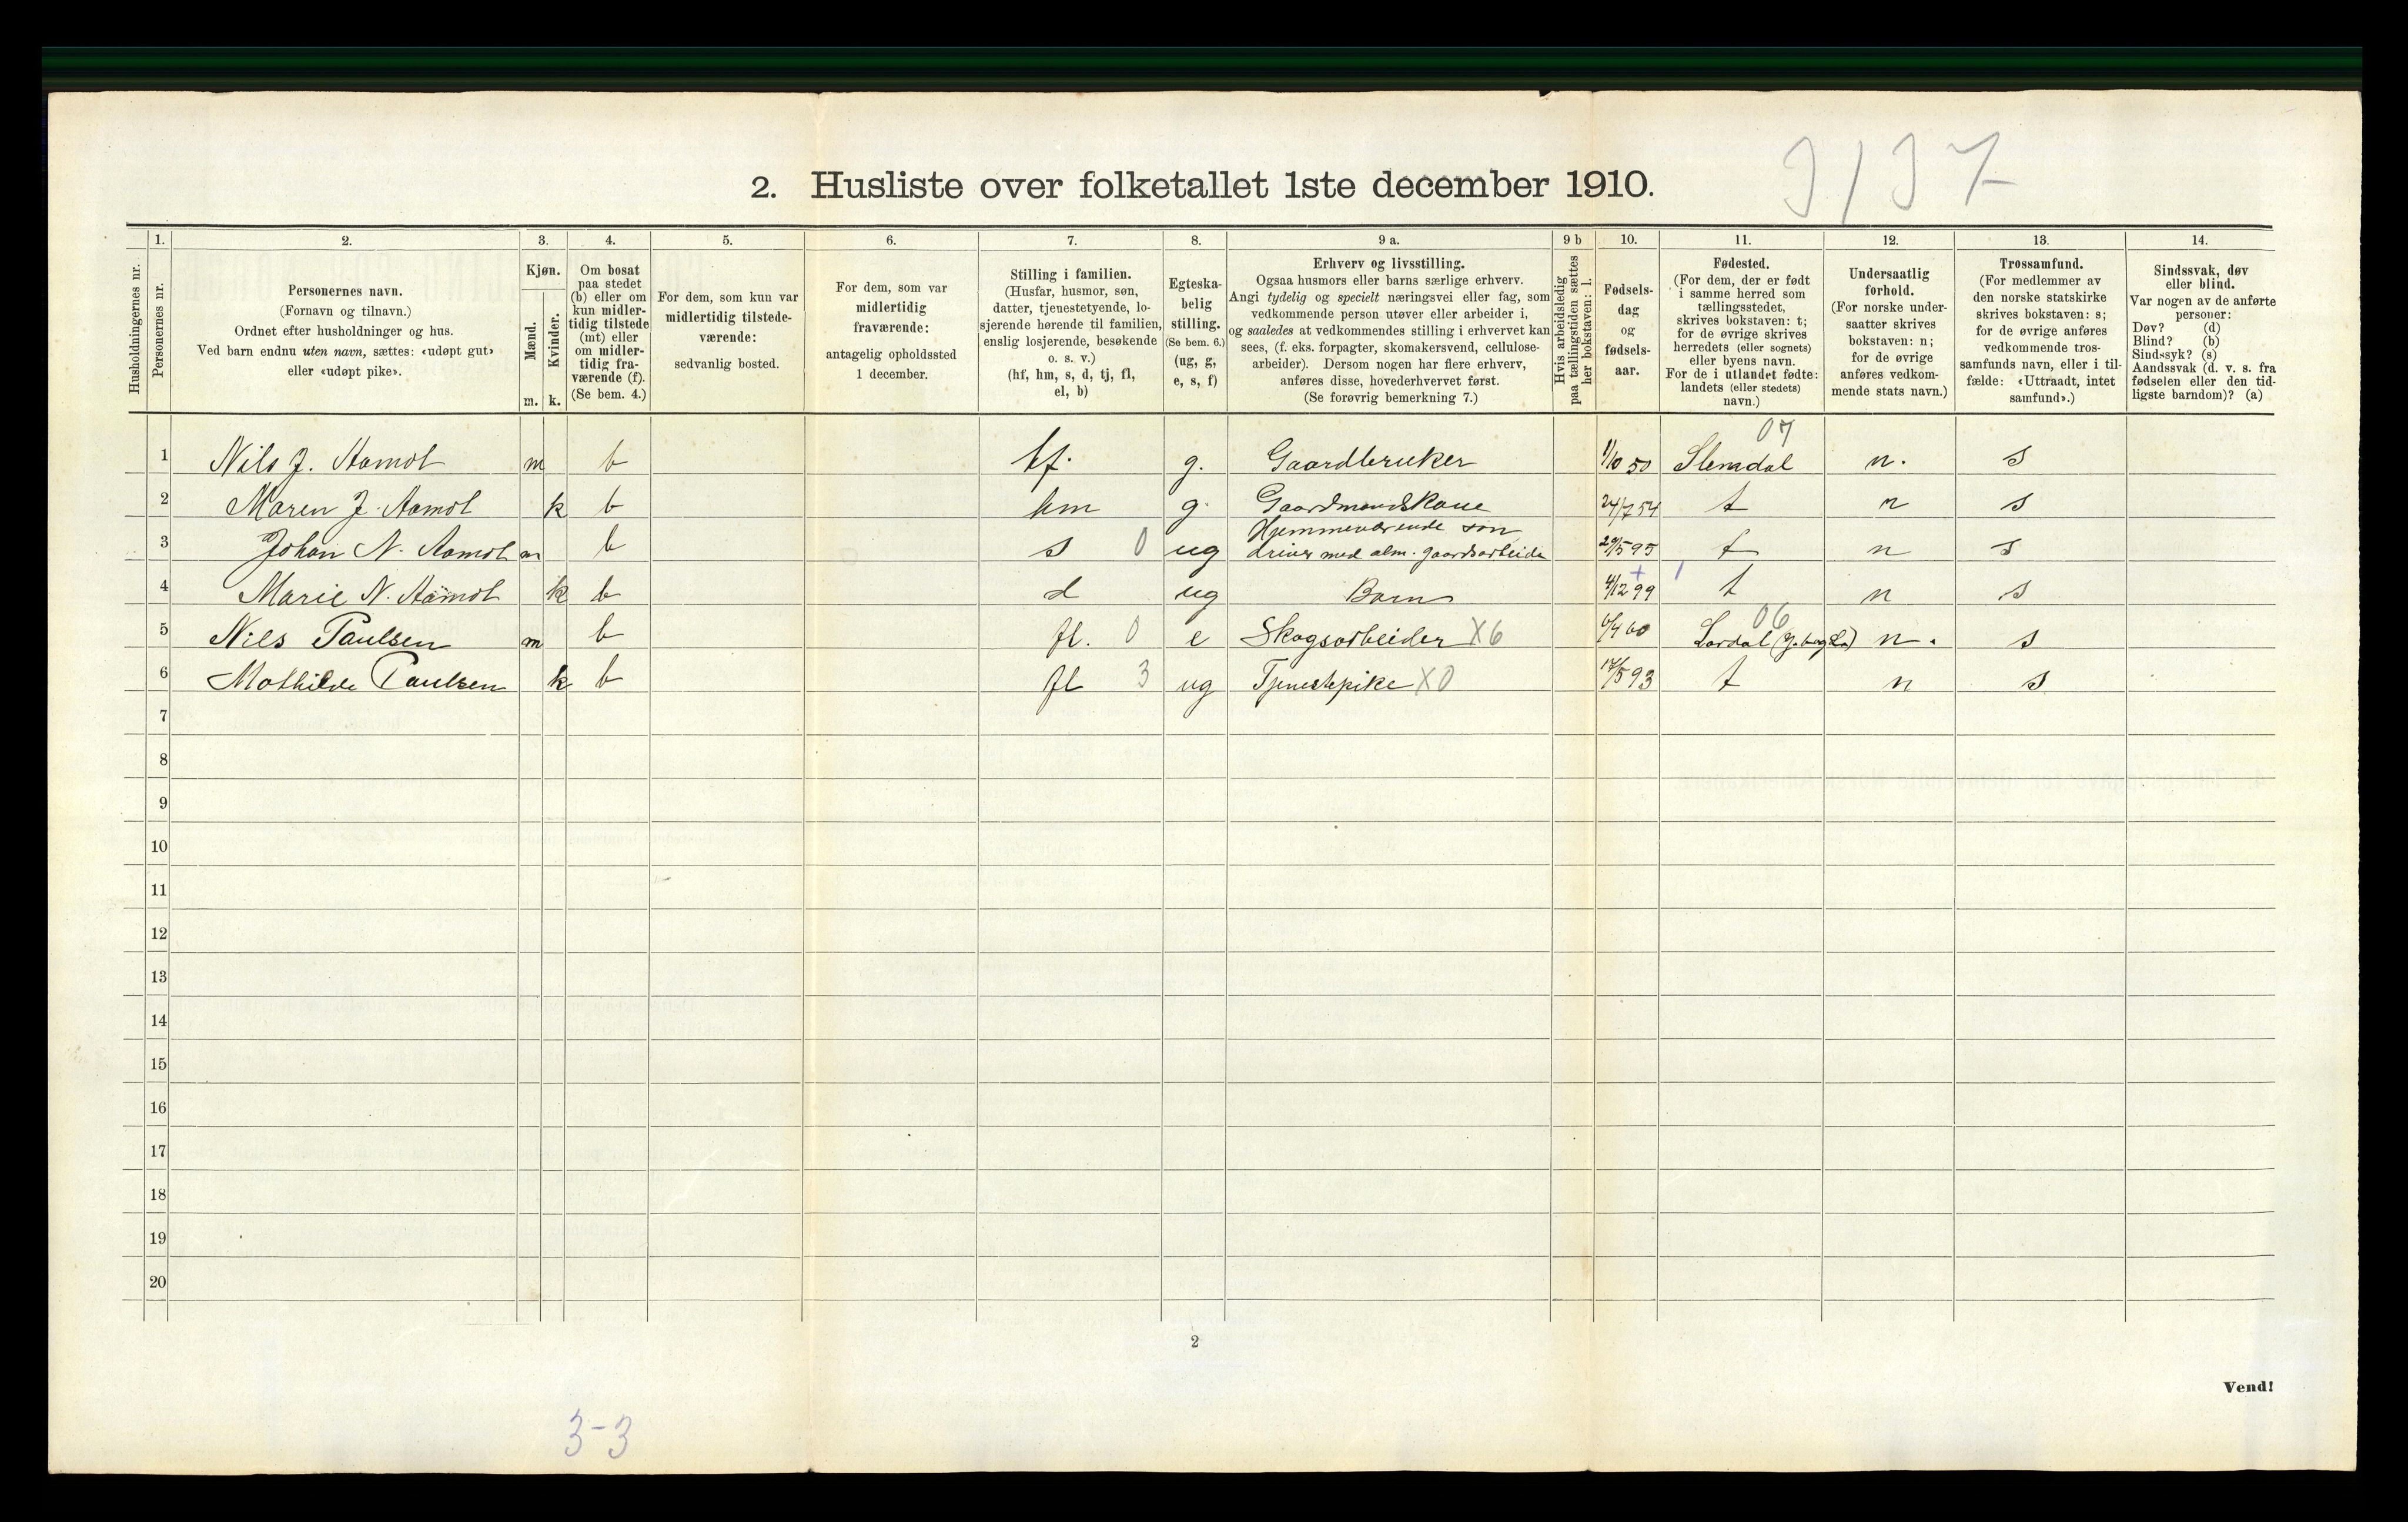 9137
2. Husliste over folketallet 1ste december 1910.
1. 2. 3. 4. 5. 6. 7. 8. 9 a. 9 b 10. 11. 12. 13. 14.
Husholdningernes nr.
Personernes nr.
Personernes navn.
(Fornavn og tilnavn.)
Ordnet efter husholdninger og hus.
Ved barn endnu uten navn, sættes: «udøpt gut»
eller «udøpt pike».
Kjøn.
Mænd.
Kvinder.
m. k.
Om bosat
paa stedet
(b) eller om
kun midler-
tidig tilstede
(mt) eller
om midler-
tidig fra-
værende (f).
(Se bem. 4.)
For dem, som kun var
midlertidig tilstede-
værende:
sedvanlig bosted.
For dem, som var
midlertidig
fraværende:
antagelig opholdssted
1 december.
Stilling i familien.
(Husfar, husmor, søn,
datter, tjenestetyende, lo-
sjerende hørende til familien,
enslig losjerende, besøkende
o. s. v.)
(hf, hm, s, d, tj, fl,
el, b)
Egteska-
belig
stilling.
(Se bem. 6.)
(ug, g,
e, s, f)
Erhverv og livsstilling.
Ogsaa husmors eller barns særlige erhverv.
Angi tydelig og specielt næringsvei eller fag, som
vedkommende person utøver eller arbeider i,
og saaledes at vedkommendes stilling i erhvervet kan
sees, (f. eks. forpagter, skomakersvend, cellulose-
arbeider). Dersom nogen har flere erhverv,
anføres disse, hovederhvervet først.
(Se forøvrig bemerkning 7.)
Hvis arbeidsledig
paa tællingstiden sættes
her bokstaven: l.
Fødsels-
dag
og
fødsels-
aar.
Fødested.
(For dem, der er født
i samme herred som
tællingsstedet,
skrives bokstaven: t;
for de øvrige skrives
herredets (eller sognets)
eller byens navn.
For de i utlandet fødte:
landets (eller stedets)
navn.)
Undersaatlig
forhold.
(For norske under-
saatter skrives
bokstaven: n;
for de øvrige
anføres vedkom-
mende stats navn.)
Trossamfund.
(For medlemmer av
den norske statskirke
skrives bokstaven: s;
for de øvrige anføres
vedkommende tros-
samfunds navn, eller i til-
fælde: «Uttraadt, intet
samfund».)
Sindssvak, døv
eller blind.
Var nogen av de anførte
personer:
Døv? (d)
Blind? (b)
Sindssyk? (s)
Aandssvak (d. v. s. fra
fødselen eller den tid-
ligste barndom)? (a)
07
1 Nils J. Aamot m b hf. g. Gaardbruker 1/10 50 Slemdal n. s
2 Maren J. Aamot k b hm g. Gaardmandskone 24/7 54 t n s
Hjemmeværende søn
3 Johan N. Aamot m b s 0 ug driver med alm. gaardsarbeide 29/5 95 t n s
4 Marie N. Aamot k b d ug Barn 4/12 99 t n s
06
5 Nils Paulsen m b fl. 0 e Skogsarbeider X6 6/4 60 Lardal n. s
6 Mathilde Paulsen k b fl 3 ug Tjenestepike X0 17/5 93 t n s
7
8
9
10
11
12
13
14
15
16
17
18
19
20
2
Vend!
3-3